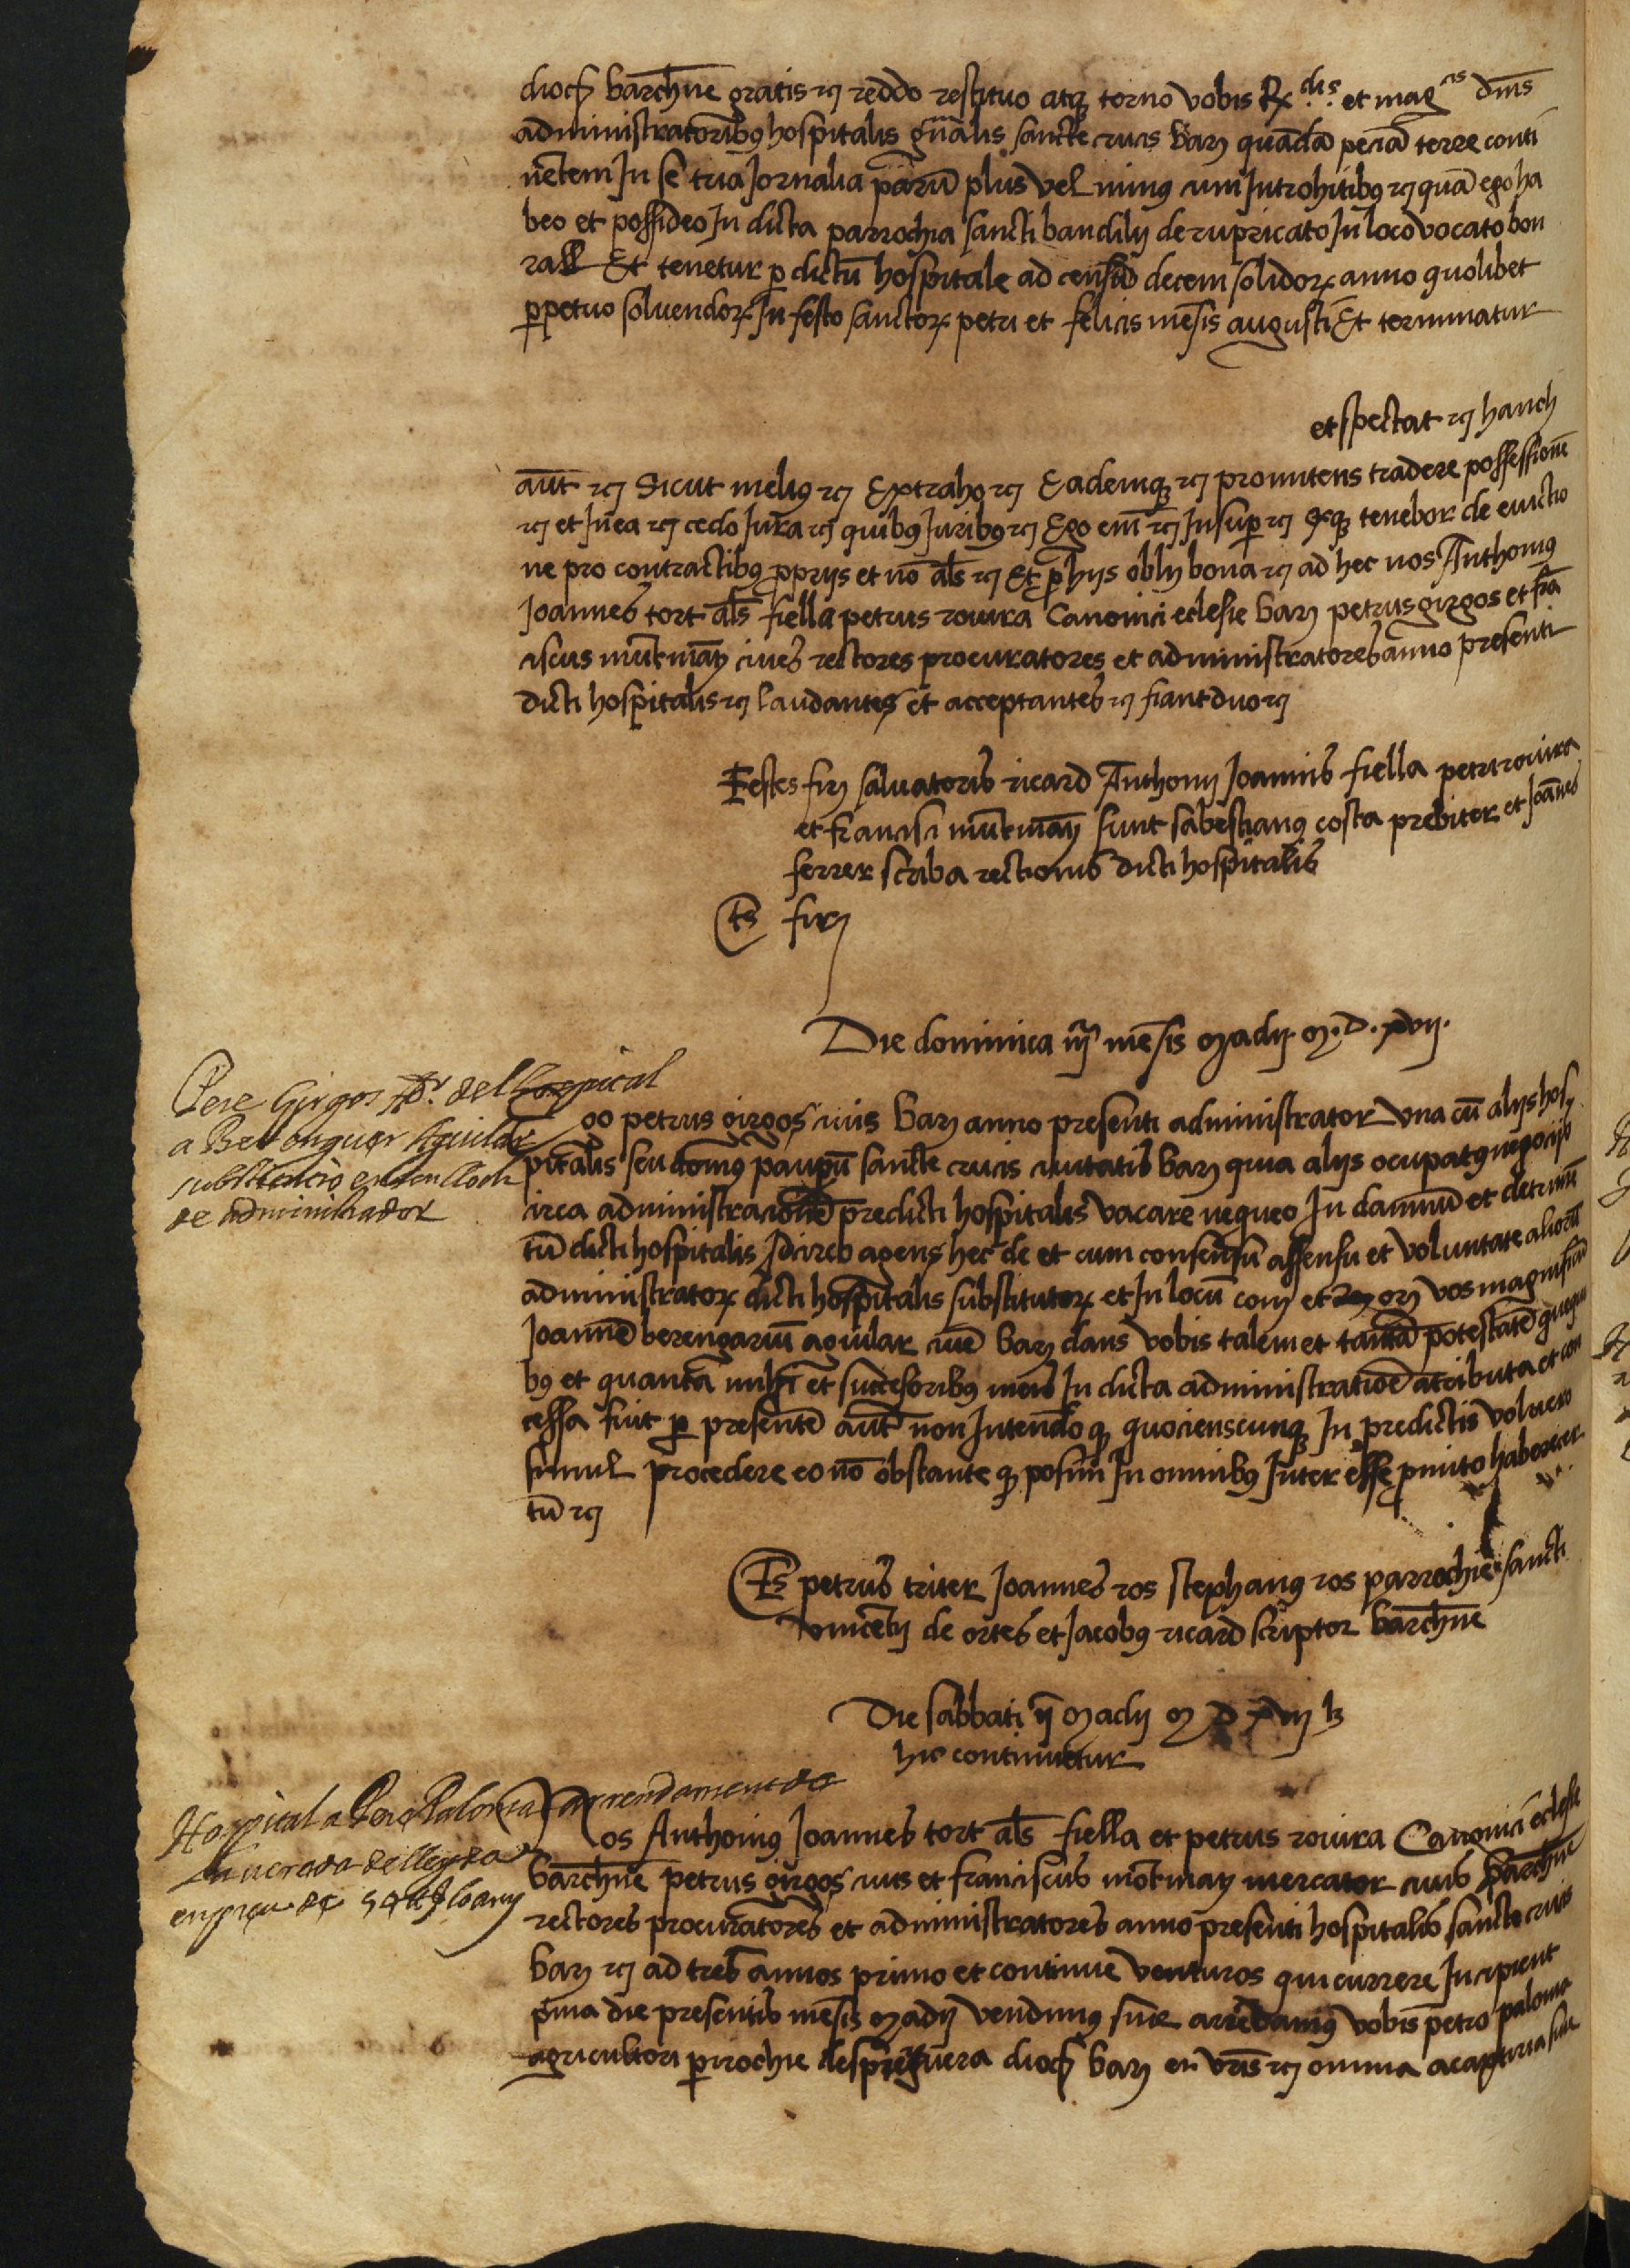 dioc̃ barchñe gratis rꝫ reddo restituo atqꝫ torno vobis Rx.dis. et magcis dñis
administratoribꝰ hospitalis gñalis sancte crucis barꝫ quãdã peciã terre conti
nẽtem In se tria Jornalia parũ plus vel minꝰ cum Introhitibꝰ rꝫ quã ego ha
beo et possideo In dicta parrochia sancti baudilij de rupricato In loco vocato bon
rall Et tenetur ꝑ dictũ hospitale ad censũ decem solidoꝝ anno quolibet
ꝑpetuo soluendoꝝ In festo sanctoꝝ petri et felicis mẽsis augusti Et terminatur
et spectat rꝫ hanch
aũt rꝫ Sicut meliꝰ rꝫ Extraho rꝫ Eademqꝫ rꝫ promitens tradere possessionẽ
rꝫ et Inea rꝫ cedo Jura rꝫ quibꝰ Juribꝰ rꝫ Ego eñi rꝫ Insuꝑ rꝫ tenebor de euictio
ne pro contractibꝰ ꝓprijs et nõ als rꝫ Et ꝓ hijs oblij bona rꝫ ad hec nos Anthoniꝰ
Joannes tort als fiella petrus rouira Canonici eclesie barꝫ petrus girgos et frã
ciscus mũtmãy ciues rectores procuratores et administratores anno presenti
dicti hospitalis rꝫ laudantes et acceptantes rꝫ fiant duo rꝫ
Testes firꝫ saluatoris ricard Anthonij Joannis fiella petri rouira
et francisci mũtmãy sunt sabestianꝰ costa prebiter et Joãnes
ferrer scriba rectionis dicti hospitalis
ts firꝫ
Die dominica iij mẽsis madij M.D.xvij.
Pere Girgos Ador del hospital
a Berenguer Aguilar
substitució en son lloch
de administrador
go petrus girgos ciuis barꝫ anno presenti administrator vna cũ alijs hos
pitalis seu domꝰ pauꝑũ sancte crucis ciuitatis barꝫ quia alijs ocupatꝰ negocijs
circa administracionẽ predicti hospitalis vacare nequeo In damnũ et detrimẽ
tũ dicti hospitalis Idcirco agens hec de et cum consensu assensu et voluntate alioꝝ
administratoꝝ dicti hospitalis substitutoꝝ et In locũ vos magnificũ
Joannẽ berengariũ aguilar ciuẽ barꝫ dans vobis talem et tantã potestatẽ
bꝰ et quantã mihi et succesoribꝰ meis In dicta administrationẽ atributa et con
cessa fuit ꝑ presentẽ aũt non Intendo qꝫ quocienscunqꝫ In predictis voluero
simul procedere eo nõ obstante qꝫ possim In omnibꝰ Inter esse ꝓmito habere
tũ rꝫ
Ts petrus triter Joannes ros stephanꝰ ros parrochie sancti
vincẽtij de ortes et Jacobꝰ ricard scriptor barchñe
Die sabbati ij madij M D xvij
hic continuetur
arrendament del
Hospital a Pere Paloma
en preu de
os Anthoniꝰ Joannes tort als fiella et petrus rouira Canonici eclesie
barchñe petrus girgos ciuis et franciscus mõtmay mercator ciuis barchñe
rectores procuratores et administratores anno presenti hospitalis sancte crucis
barꝫ rꝫ ad tres annos primo et continue venturos qui currere Incipient
ꝓma die presentis mẽsis madij vendimꝰ siue arrẽdamꝰ vobis petro paloma
agricultori ꝑrochie desprãguera dioc̃ barꝫ et vris rꝫ omnia acaptiria siue